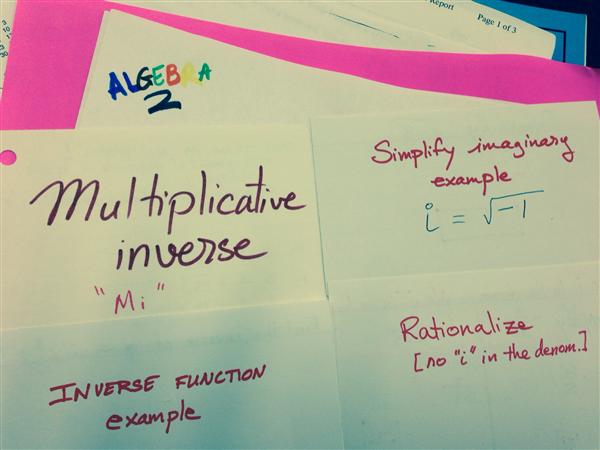 Report
Page 1 of 3
ALGEBRA
2
Multiplicative
inverse
"Mi"
Simplify imaginary
example
i = √-1
Rationalize
[no "i" in the denom.]
INVERSE FUNCTION
example